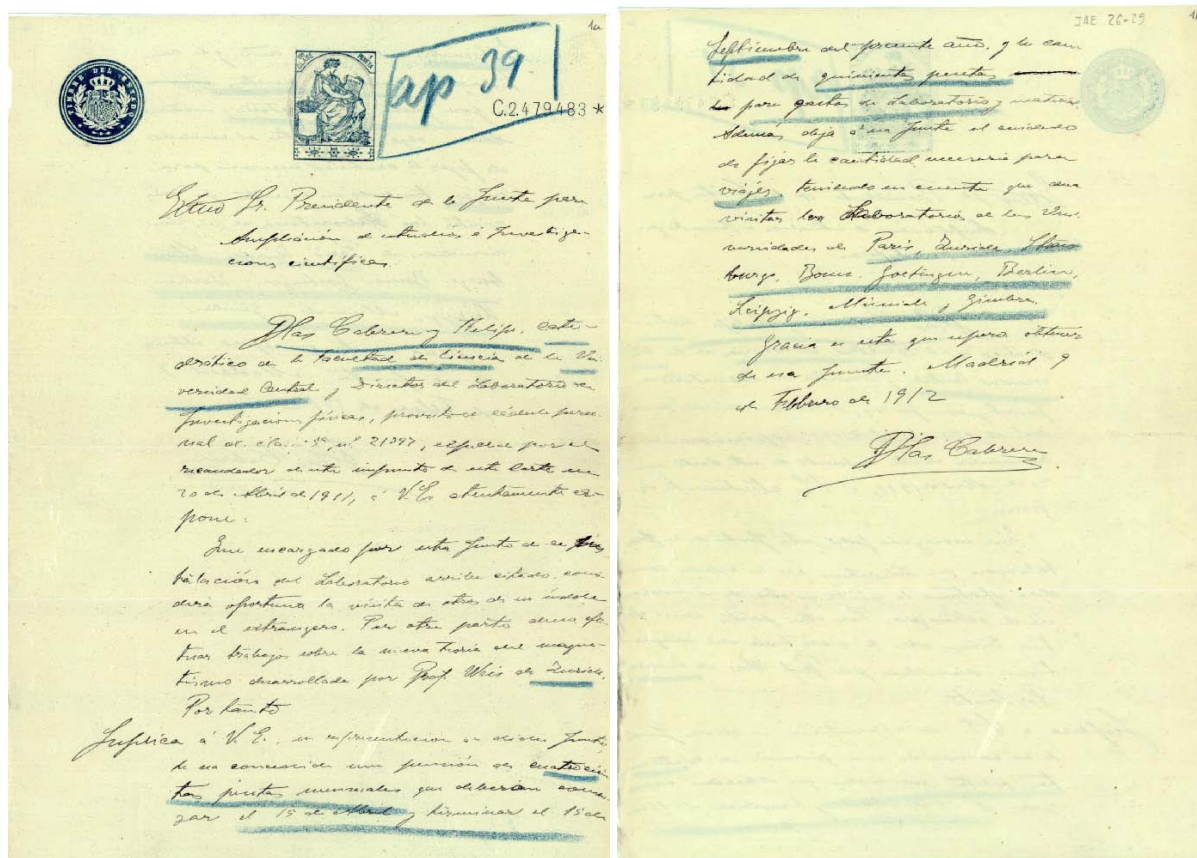 1a
TIMBRE DEL ESTADO
ap 39
C.2.479.483 *
Excmo Sr. Presidente de la Junta para
Ampliación de estudios é Investiga-
ciones científicas.
Blas Cabrera y Felipe, cate-
drático de la Facultad de Ciencias de la Uni
versidad Central y Director del Laboratorio de
Investigaciones físicas, provisto de cédula perso-
nal de clase 9ª nº 21397, expedida por el
recaudador de este impuesto de esta Corte en
20 de Abril de 1911, á V.E. atentamente ex-
pone:
Que encargado por esta Junta de la ins
talación del Laboratorio arriba citado, consi
dera oportuna la visita de otros de su índole
en el extrangero. Por otra parte desea efec
tuar trabajos sobre la nueva teoría del magne-
tismo desarrollada por Prof. Weis de Zurich.
Por tanto
Suplica á V.E., en representación de dicha Junta,
le sea concedida una pensión de cuatrocien
tas pesetas mensuales que deberían comen
zar el 15 de Abril y terminar el 15 de
JAE 26-29
Septiembre del presente año, y la can
tidad de quinientas pesetas
para gastos de Laboratorio y material
Además deja á esa Junta el cuidado
de fijar la cantidad necesaria para
viajes, teniendo en cuenta que desea
visitar los Laboratorios de las Uni
versidades de Paris, Zurich, Stras
burgo, Bonn, Goetingen, Berlin,
Leipzig, Munich y Ginebra.
Gracia es esta que espera obtener
de esa Junta. Madrid 9
de Febrero de 1912
Blas Cabrera